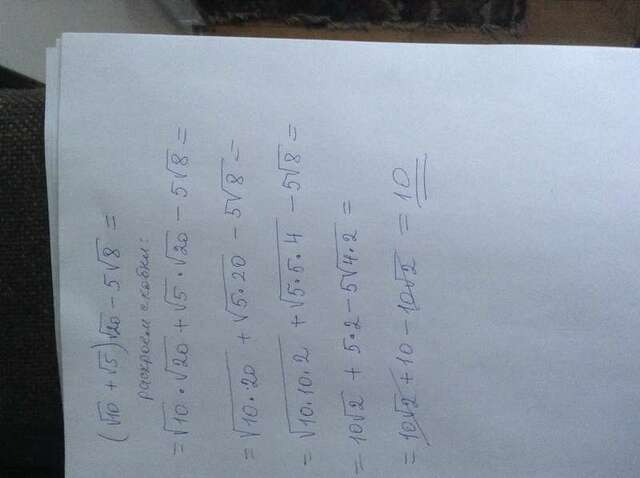 (√10 + √5)√20 − 5√8 =
раскроем скобки:
= √10 · √20 + √5 · √20 − 5√8 =
= √10·20 + √5·20 − 5√8 =
= √10·10·2 + √5·5·4 − 5√8 =
= 10√2 + 5·2 − 5√4·2 =
= 10√2 + 10 − 10√2 = 10